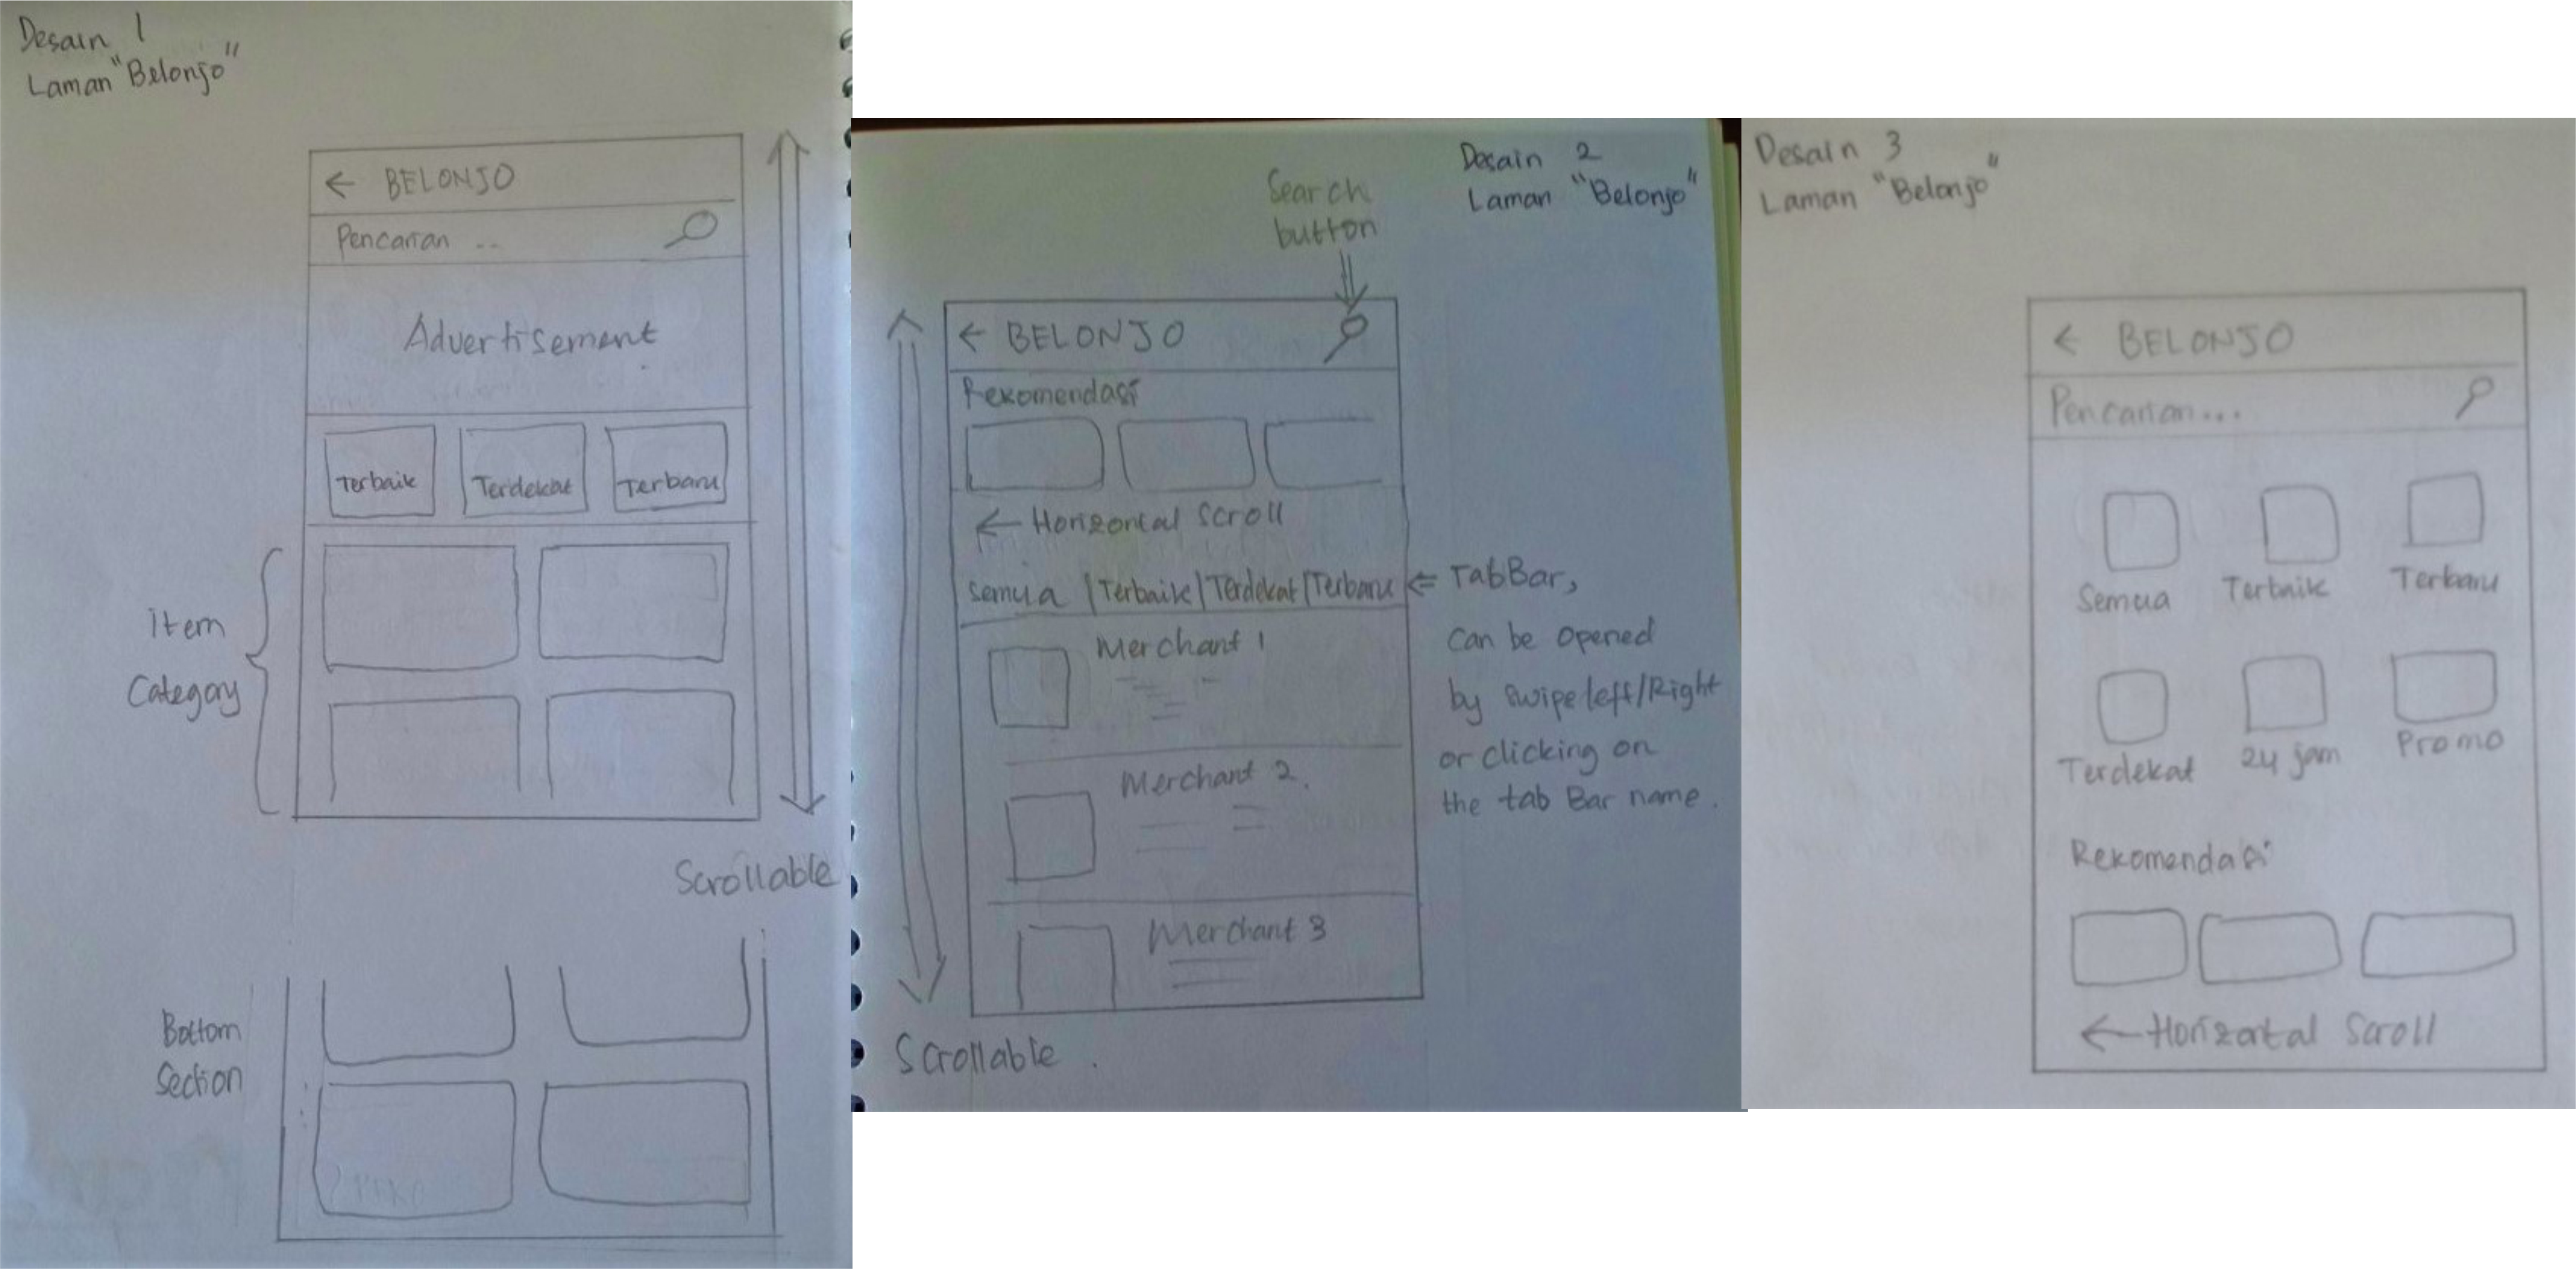 Desain 1
Laman "Belonjo"
← BELONJO
Pencarian ..
Advertisement
Terbaik Terdekat Terbaru
Item
Category
Scrollable
Bottom
Section
Desain 2
Laman "Belonjo"
Search
button
← BELONJO
Rekomendasi
← Horizontal Scroll
Semua | Terbaik | Terdekat | Terbaru
⇐ TabBar,
Can be opened
by swipe left/Right
or clicking on
the tab Bar name.
Merchant 1
Merchant 2.
Merchant 3
Scrollable.
Desain 3
Laman "Belonjo"
← BELONJO
Pencarian...
Semua Terbaik Terbaru
Terdekat 24 jam Promo
Rekomendasi
← Horizontal Scroll